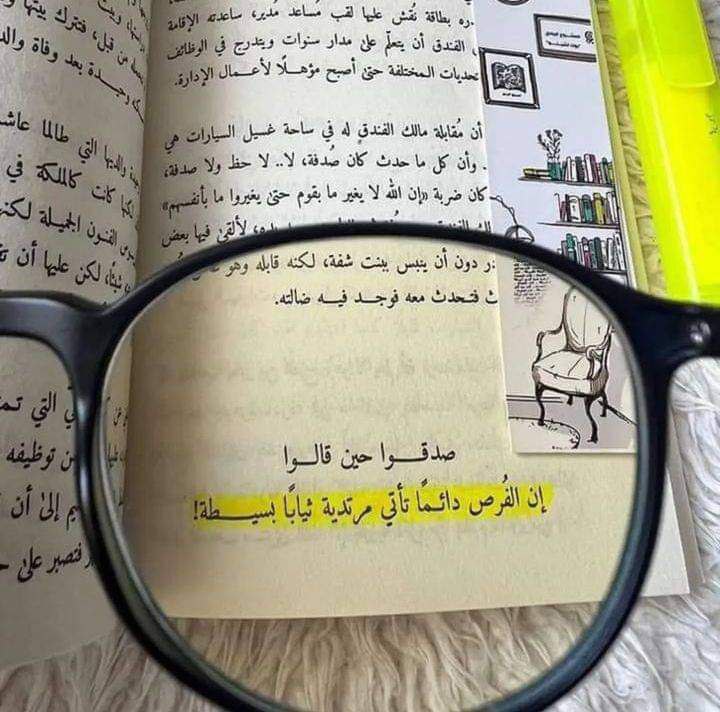 ره بطاقة نُقش عليها لقب مُساعد مُدير، ساعدته الإقامة
الفندق أن يتعلّم على مدار سنوات ويتدرج في الوظائف
تحديات المختلفة حتى أصبح مؤهلًا لأعمال الإدارة.
أن مُقابلة مالك الفندق له في ساحة غسيل السيارات هي
وأن كل ما حدث كان صُدفة، لا.. لا حظ ولا صدفة،
كان ضربة «إن الله لا يغير ما بقوم حتى يغيروا ما بأنفسهم»
لألقى فيها بعض
در دون أن ينبس ببنت شفة، لكنه قابله وهو
ث فتحدث معه فوجد فيه ضالته.
صدقوا حين قالوا
إن الفُرص دائمًا تأتي مرتدية ثيابًا بسيطة!
من قبل، فتترك بيتها
وحيدة بعد وفاة
والديها التي طالما
كانت كالملكة في
الفنون الجميلة
شيئًا، لكن عليها أن
التي
توظيفه
إلى أن
فتصبر على